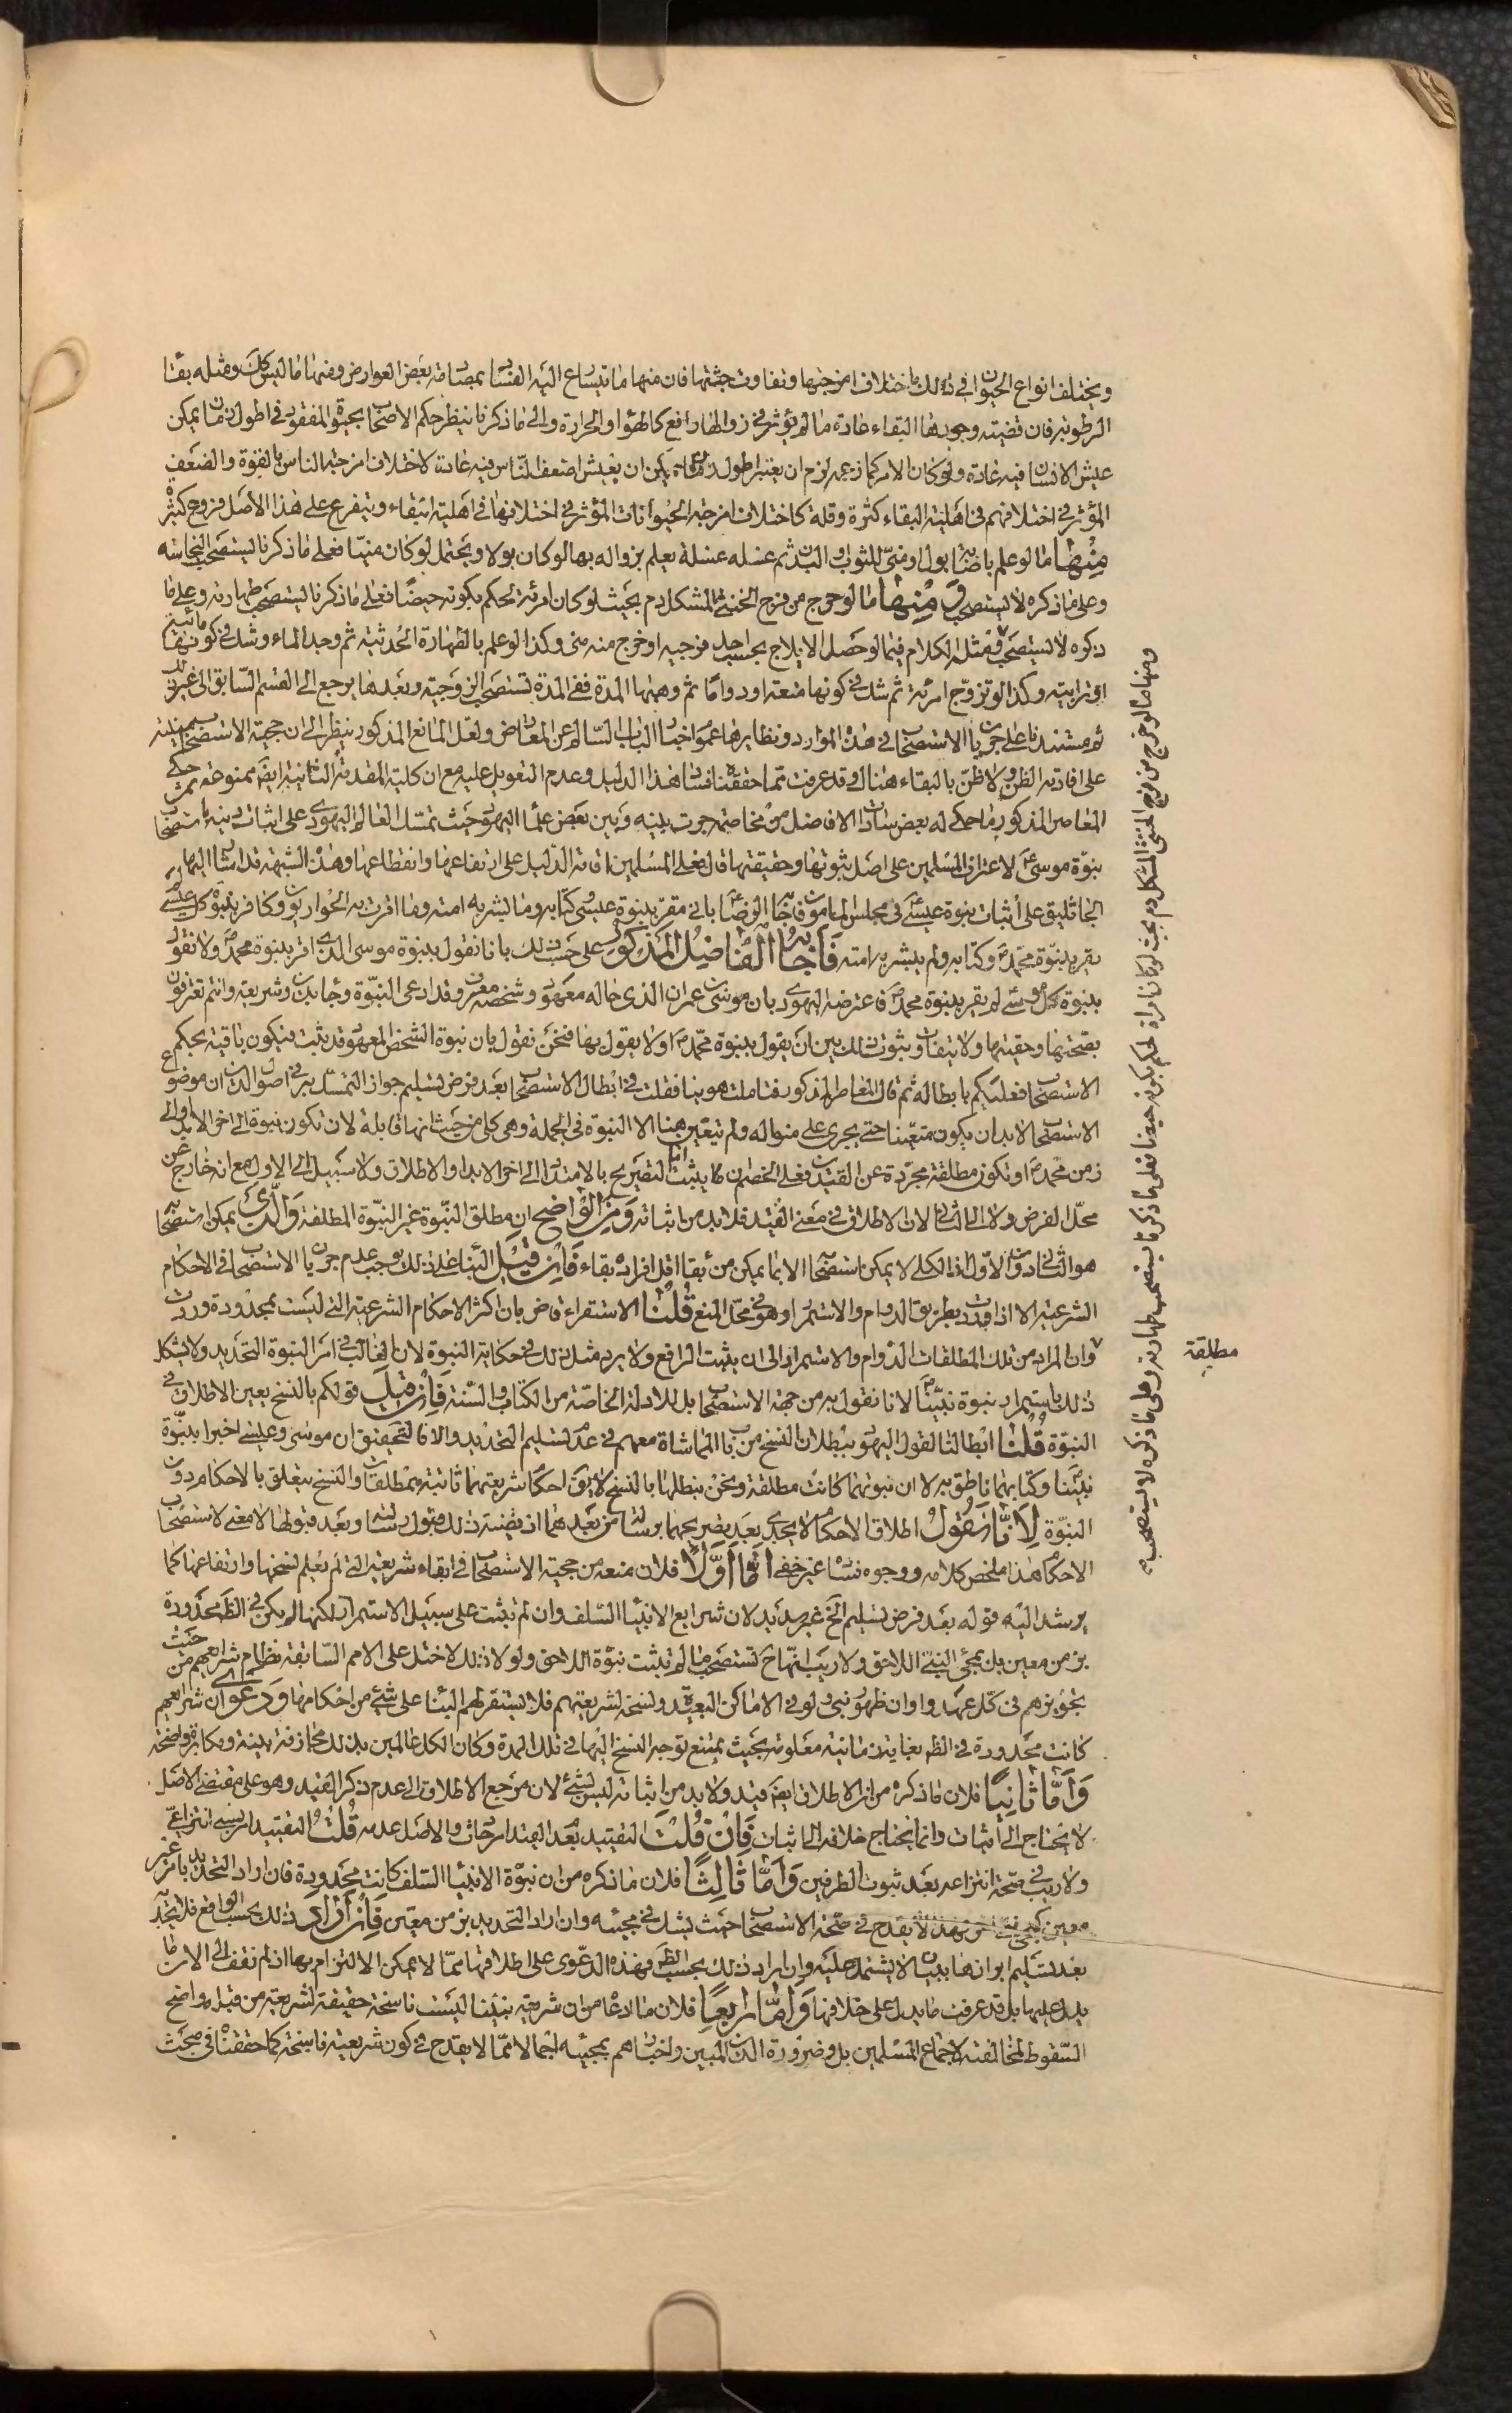 ويختلف انواع الحيوان في ذلك باختلاف امزجتها وتفاوت جثتها فان منها ما يتسارع اليه الفساد بمصادفة بعض العوارض ومنها ما ليس كك ومثله بقاء
الرطوبة فان قضيته وجودها البقاء عادة ما لم يؤثر في زوالها رافع كالهواء والحرارة والى ما ذكرنا ينظر حكم الاصحاب بحيوة المفقود في اطول زمان يمكن
عيش الانسان فيه عادة ولو كان الامر كما زعمه لزم ان يعتبر اطول زمان يمكن ان يعيش اضعف الناس فيه عادة لاختلاف امزجة الناس بالقوة والضعف
المؤثر في اختلافهم في اهلية البقاء كثرة وقلة كاختلاف امزجة الحيوانات المؤثر في اختلافها في اهلية البقاء ويتفرع على هذا الاصل فروع كثيرة
منها ما لو علم باصابة بول او مني للثوب او البدن ثم غسله غسلة يعلم بزواله بها لو كان بولا ويحتمل لو كان منيا فعلى ما ذكرنا يستصحب النجاسة
وعلى ما ذكره لا يستصحب ومنها ما لو خرج من فرج الخنثى المشكل دم بحيث لو كان امرئة لحكم بكونه حيضا فعلى ما ذكرنا يستصحب طهارته وعلى ما
ذكره لا يستصحب ومثله الكلام فيما لو حصل الايلاج بحسب احد فرجيه او خرج منه مني وكذا لو علم بالطهارة الحدثية ثم وجد الماء وشك في كونها مائية
او ترابية وكذا لو تزوج امرئة ثم شك في كونها متعة او دواما ثم وهبها المدة ففي المدة تستصحب الزوجية وبعدها يرجع الى القسم السابق الى غير ذلك
ثم مستندنا على جريان الاستصحاب في هذه الموارد ونظايرها عموم اخبار الباب السالم عن المعارض ولعل المانع المذكور ينظر الى ان حجية الاستصحاب مبنية
على افادته الظن ولا ظن بالبقاء هنالك وقد عرفت مما حققنا فساد هذا الدليل وعدم التعويل عليه مع ان كلية المقدمة الثانية ايضا ممنوعة ثم حكى
المعاصر المذكور ما حكي له بعض سادات الافاضل من مخاصمة جرت بينه وبين بعض علماء اليهود حيث تمسك العالم اليهودي على اثبات دينه باستصحاب
نبوة موسى ع لاعتراف المسلمين على اصل ثبوتها وحقيقتها قال فعلى المسلمين اقامة الدليل على ارتفاعها وانقطاعها وهذه الشبهة قد اشار اليها
الجاثليق على اثبات نبوة عيسى ع في مجلس المامون فاجابه الرضا ع باني مقر بنبوة عيسى وكتابه وما بشر به امته وما اقرت به الحواريون وكافر بنبوة كل عيسى لم
يقر بنبوة محمد ص وكتابه ولم يبشر به امته فاجابه الفاضل المذكور على حسب ذلك بانا نقول بنبوة موسى الذي اقر بنبوة محمد ص ولا نقول
بنبوة كل موسى لم يقر بنبوة محمد ص فاعترضه اليهودي بان موسى بن عمران الذي حاله معهود وشخصه معروف قد ادعى النبوة وجاء بدين وشريعة وانتم تعترفون
بصحتها وحقيتها ولا يتفاوت ثبوت ذلك بين ان يقول بنبوة محمد ص او لا يقول بها فنحن نقول بان نبوة الشخص المعهود قد ثبت فيكون باقية بحكم
الاستصحاب فعليكم بابطاله ثم قال المعاصر المذكور فتاملت هوينا فقلت في ابطال الاستصحاب بعد فرض تسليم جواز التمسك به في اصول الدين ان موضوع
الاستصحاب لا بد ان يكون متعينا حتى يجري على منواله ولم يتعين هنا الا النبوة في الجملة وهي كلي من حيث انها قابلة لان تكون نبوة الى اخر الابد او الى
زمن محمد ص او تكون مطلقة مجردة عن القيدين فعلى الخصم ان يثبت اما التصريح بالامتداد الى اخر الابد او الاطلاق ولا سبيل الى الاول مع انه خارج عن
محل الفرض ولا الى الثاني لان الاطلاق في معنى القيد فلا بد من اثباته ومن الواضح ان مطلق النبوة غير النبوة المطلقة والذي يمكن استصحابه
هو الثاني دون الاول اذ الكلي لا يمكن استصحابه الا بما يمكن من بقاء اقل افراده بقاء فان قيل البناء على ذلك يوجب عدم جريان الاستصحاب في الاحكام
الشرعية الا اذا وردت بطريق الدوام والاستمرار وهو في محل المنع قلنا الاستقراء قاض بان اكثر الاحكام الشرعية التي ليست بمحدودة وردت
وان المراد من تلك المطلقات الدوام والاستمرار الى ان يثبت الرافع ولا يرد مثل ذلك في حكاية النبوة لان الغالب في امر النبوة التحديد ولا يشكل
ذلك باستمرار نبوة نبينا ص لانا نقول به من جهة الاستصحاب بل للادلة الخاصة من الكتاب والسنة فان قيل قولكم بالنسخ يعين الاطلاق في
النبوة قلنا ابطالنا لقول اليهود ببطلان النسخ من باب المماشاة معهم في عدم تسليم التحديد والا فالتحقيق ان موسى وعيسى اخبرا بنبوة
نبينا وكتابهما ناطق به لا ان نبوتهما كانت مطلقة ونحن نبطلها بالنسخ لا يق احكام شريعتهما ثابتة بمطلقات والنسخ يتعلق بالاحكام دون
النبوة لانا نقول اطلاق الاحكام لا يجدي بعد تصريحهما برسالة من بعدهما اذ قضيته ذلك قبول رسالته وبعد قبولها لا معنى لاستصحاب
الاحكام هذا ملخص كلامه ووجوه فساده غير خفي اما اولا فلان منعه من حجية الاستصحاب في بقاء شريعة التي لم يعلم نسخها وارتفاعها كما
يرشد اليه قوله بعد فرض تسليم الخ غير سديد لان شرايع الانبياء السلف وان لم تثبت على سبيل الاستمرار لكنها لم يكن في الظ محدودة
بزمن معين بل بمجئ النبي اللاحق ولا ريب انها ح تستصحب ما لم تثبت نبوة اللاحق ولولا ذلك لاختل على الامم السابقة نظام شرايعهم من حيث
تجويزهم في كل عهد واوان ظهور نبي ولو في الاماكن البعيدة ونسخه لشريعتهم فلا يستقر لهم البناء على شئ من احكامها ودعوى ان شرايعهم
كانت محدودة في الظ بغاية زمانية معلومة بحيث يمتنع توجه النسخ اليها في تلك المدة وكان الكل عالمين بذلك مجازفة بينة ومكابرة واضحة
واما ثانيا فلان ما ذكره من ان الاطلاق ايضا قيد ولا بد من اثباته ليس بشئ لان مرجع الاطلاق الى عدم ذكر القيد وهو على مقتضى الاصل
لا يحتاج الى اثبات وانما يحتاج خلافه الى اثبات فان قلت التقييد بعد القيد امر حادث والاصل عدمه قلت التقييد امر نسبي انتزاعي
ولا ريب في صحة انتزاعه بعد ثبوت الطرفين واما ثالثا فلان ما ذكره من ان نبوة الانبياء السلف كانت محدودة فان اراد التحديد بامر غير
معين كمجئ نبي من بعد لا يقدح في صحة الاستصحاب حيث يشك في مجيئه وان اراد التحديد بزمن معين فان اراد ذلك بحسب الواقع فلا يجديه
بعد تسليم ايراثها بدونه لا يشتمل عليه وان اراد ذلك بحسب الظ فهذه الدعوى على اطلاقها مما لا يمكن الالتزام بها اذ لم نقف الى الان ما
يدل عليها بل قد عرفت ما يدل على خلافها واما رابعا فلان ما ادعاه من ان شريعة نبينا ليست ناسخة حقيقة لشريعة من قبله واضح
السقوط لمخالفته لاجماع المسلمين بل وضرورة الدين المبين واخبارهم بمجيئه اجمالا مما لا يقدح في كون شريعته ناسخة كما حققناه في مبحث
ومنها ما لو خرج من فرج الخنثى المشكل دم بحيث لو كان امراة لحكم بكونه حيضا فعلى ما ذكرنا يستصحب طهارته وعلى ما ذكره لا يستصحب
مطلقة